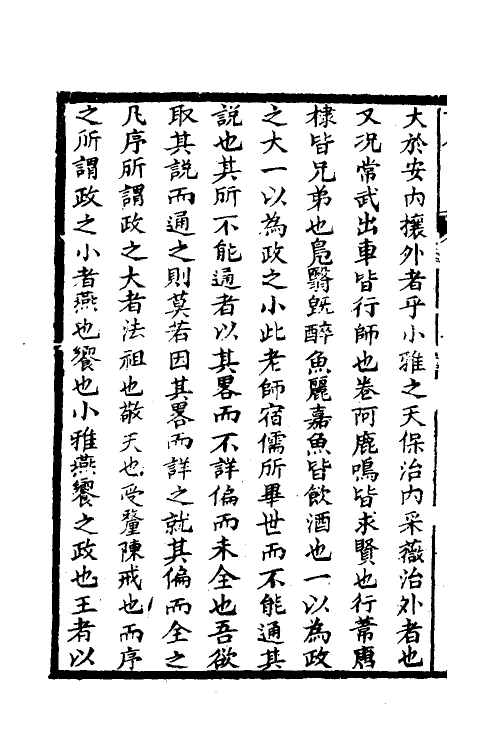 大於安内攘外者乎小雅之天保治内采薇治外者也
又况常武出車皆行師也卷阿鹿鳴皆求賢也行葦唐
棣皆兄弟也鳬鷖旣醉魚麗嘉魚皆飲酒也一以為政
之大一以為政之小此老師宿儒所畢世而不能通其
説也其所不能通者以其畧而不詳偏而未全也吾欲
取其説而通之則莫若因其畧而詳之就其偏而全之
凡序所謂政之大者法祖也敬天也受釐陳戒也而序
之所謂政之小者燕也饗也小雅燕饗之政也王者以